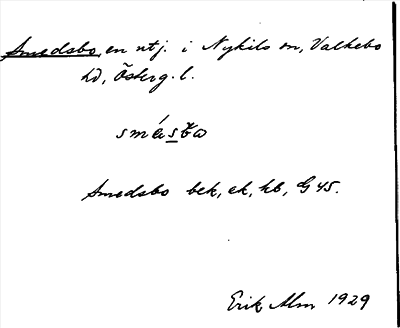 Smedsbo, en utj. i Nykils sn, Valkebo
hd, Österg. l.
Smedsbo bek, ek, hb, G 45.
Erik Alm 1929